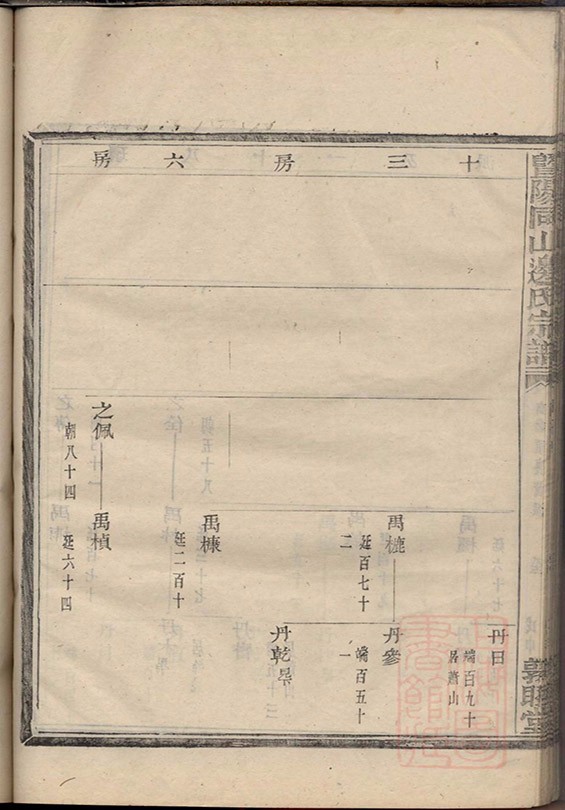 暨陽同山邊氏宗譜
敦睦堂
十三房六房
丹日
端百九十
居蕭山
禹槐
廷百七十
二
丹參
端百五十
一
丹乾
禹槺
廷二百十
之佩
朝八十四
禹楨
廷六十四